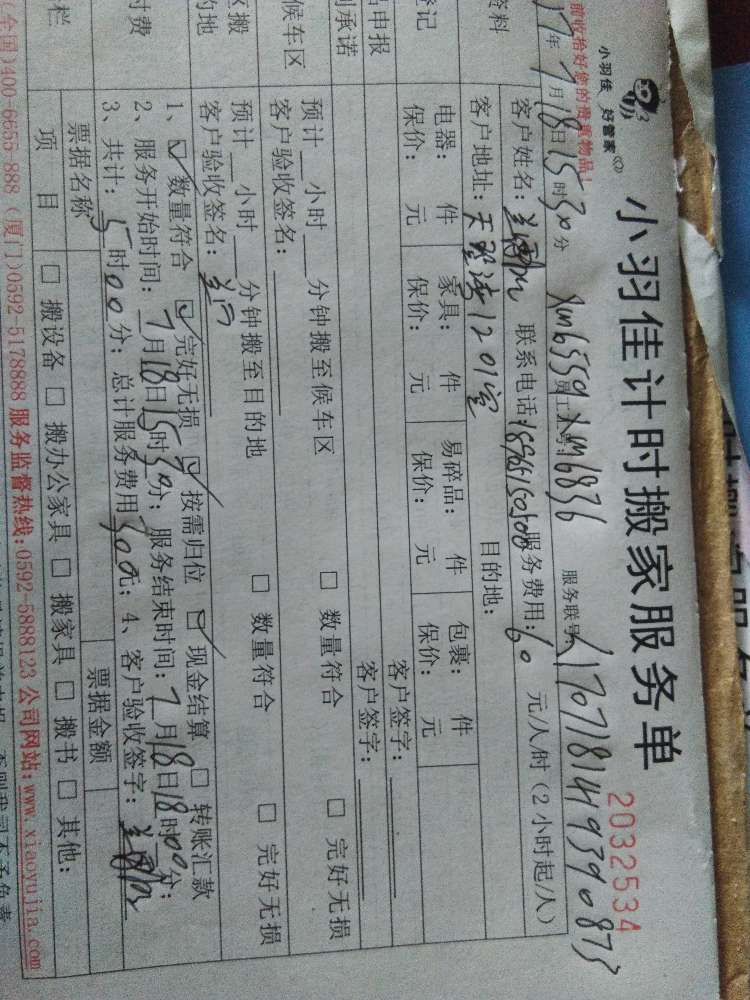 小羽佳 好管家
小羽佳计时搬家服务单
2032534
前收拾好您的贵重物品!
17年7月18日15时30分 xm6559 xm6836 服务联号:
资料
客户姓名: 联系电话: 服务费用:60元/人/时(2小时起/人)
客户地址: 1201室 目的地:
登记
电器: 件 家具: 件 易碎品: 件 包裹: 件 客户签字:
保价: 元 保价: 元 保价: 元 保价: 元
品申报
客户签字:
承诺
候车区
预计 小时 分钟搬至候车区 □ 数量符合 □ 完好无损
客户验收签名:
区搬
的地
预计 小时 分钟搬至目的地 □ 数量符合 □ 完好无损
客户验收签名:
付费
1、☑ 数量符合 ☑ 完好无损 ☑ 按需归位 ☑ 现金结算 □ 转账汇款
2、服务开始时间:7月18日15时30分; 服务结束时间:7月18日18时00分;
3、共计:5时00分; 总计服务费用300元; 4、客户验收签字:
栏
票据名称 票据金额
项 目 □ 搬设备 □ 搬办公家具 □ 搬家具 □ 搬书 □ 其他:
(全国)400-6655-888 (厦门)0592-5178888 服务监督热线:0592-5888123 公司网站:www.xiaoyujia.com